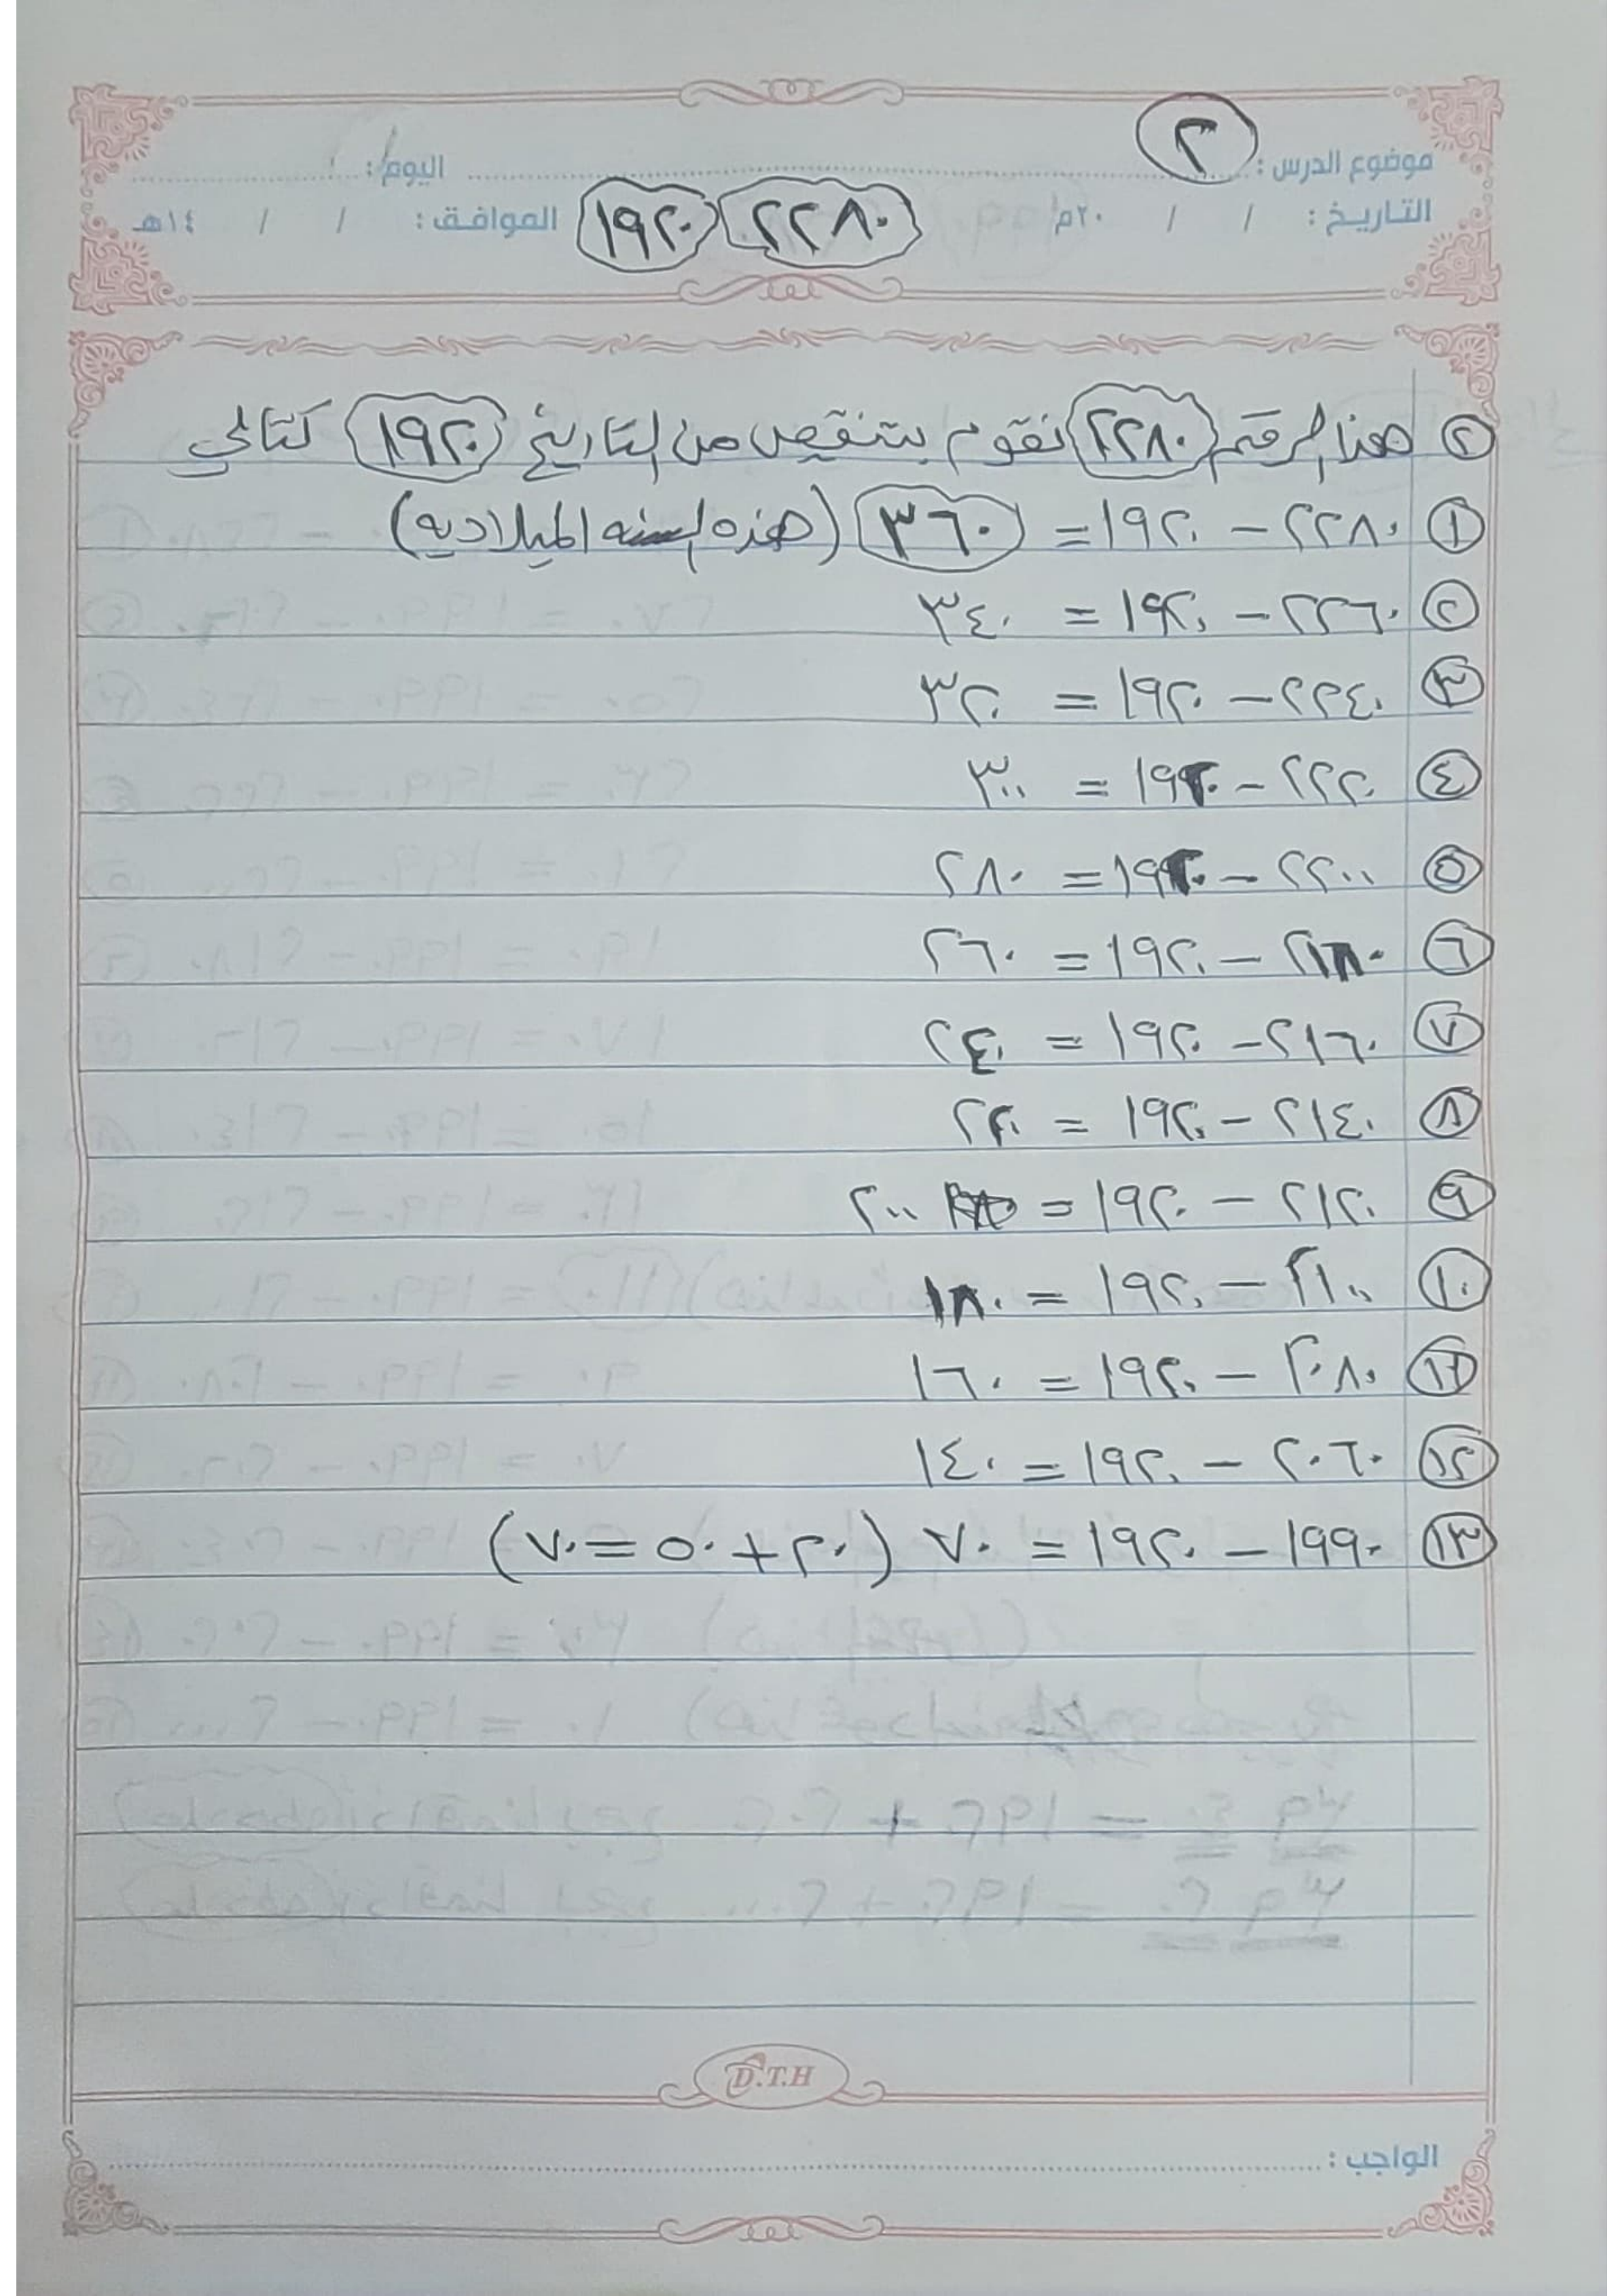 موضوع الدرس : ٢ اليوم :
التاريخ : / / ٢٠م ٢٢٨٠ ١٩٢٠ الموافق : / / ١٤هـ
٢ هذا الرقم ٢٢٨٠ نقوم بتنقيص من التاريخ ١٩٢٠ كتالي
١ ٢٢٨٠ - ١٩٢٠ = ٣٦٠ (هذه السنه الميلاديه)
٢ ٢٢٦٠ - ١٩٢٠ = ٣٤٠
٣ ٢٢٤٠ - ١٩٢٠ = ٣٢٠
٤ ٢٢٢٠ - ١٩٢٠ = ٣٠٠
٥ ٢٢٠٠ - ١٩٢٠ = ٢٨٠
٦ ٢١٨٠ - ١٩٢٠ = ٢٦٠
٧ ٢١٦٠ - ١٩٢٠ = ٢٤٠
٨ ٢١٤٠ - ١٩٢٠ = ٢٢٠
٩ ٢١٢٠ - ١٩٢٠ = ٢٠٠
١٠ ٢١٠٠ - ١٩٢٠ = ١٨٠
١١ ٢٠٨٠ - ١٩٢٠ = ١٦٠
١٢ ٢٠٦٠ - ١٩٢٠ = ١٤٠
١٣ ١٩٩٠ - ١٩٢٠ = ٧٠ (٢٠ + ٥٠ = ٧٠)
D.T.H
الواجب :